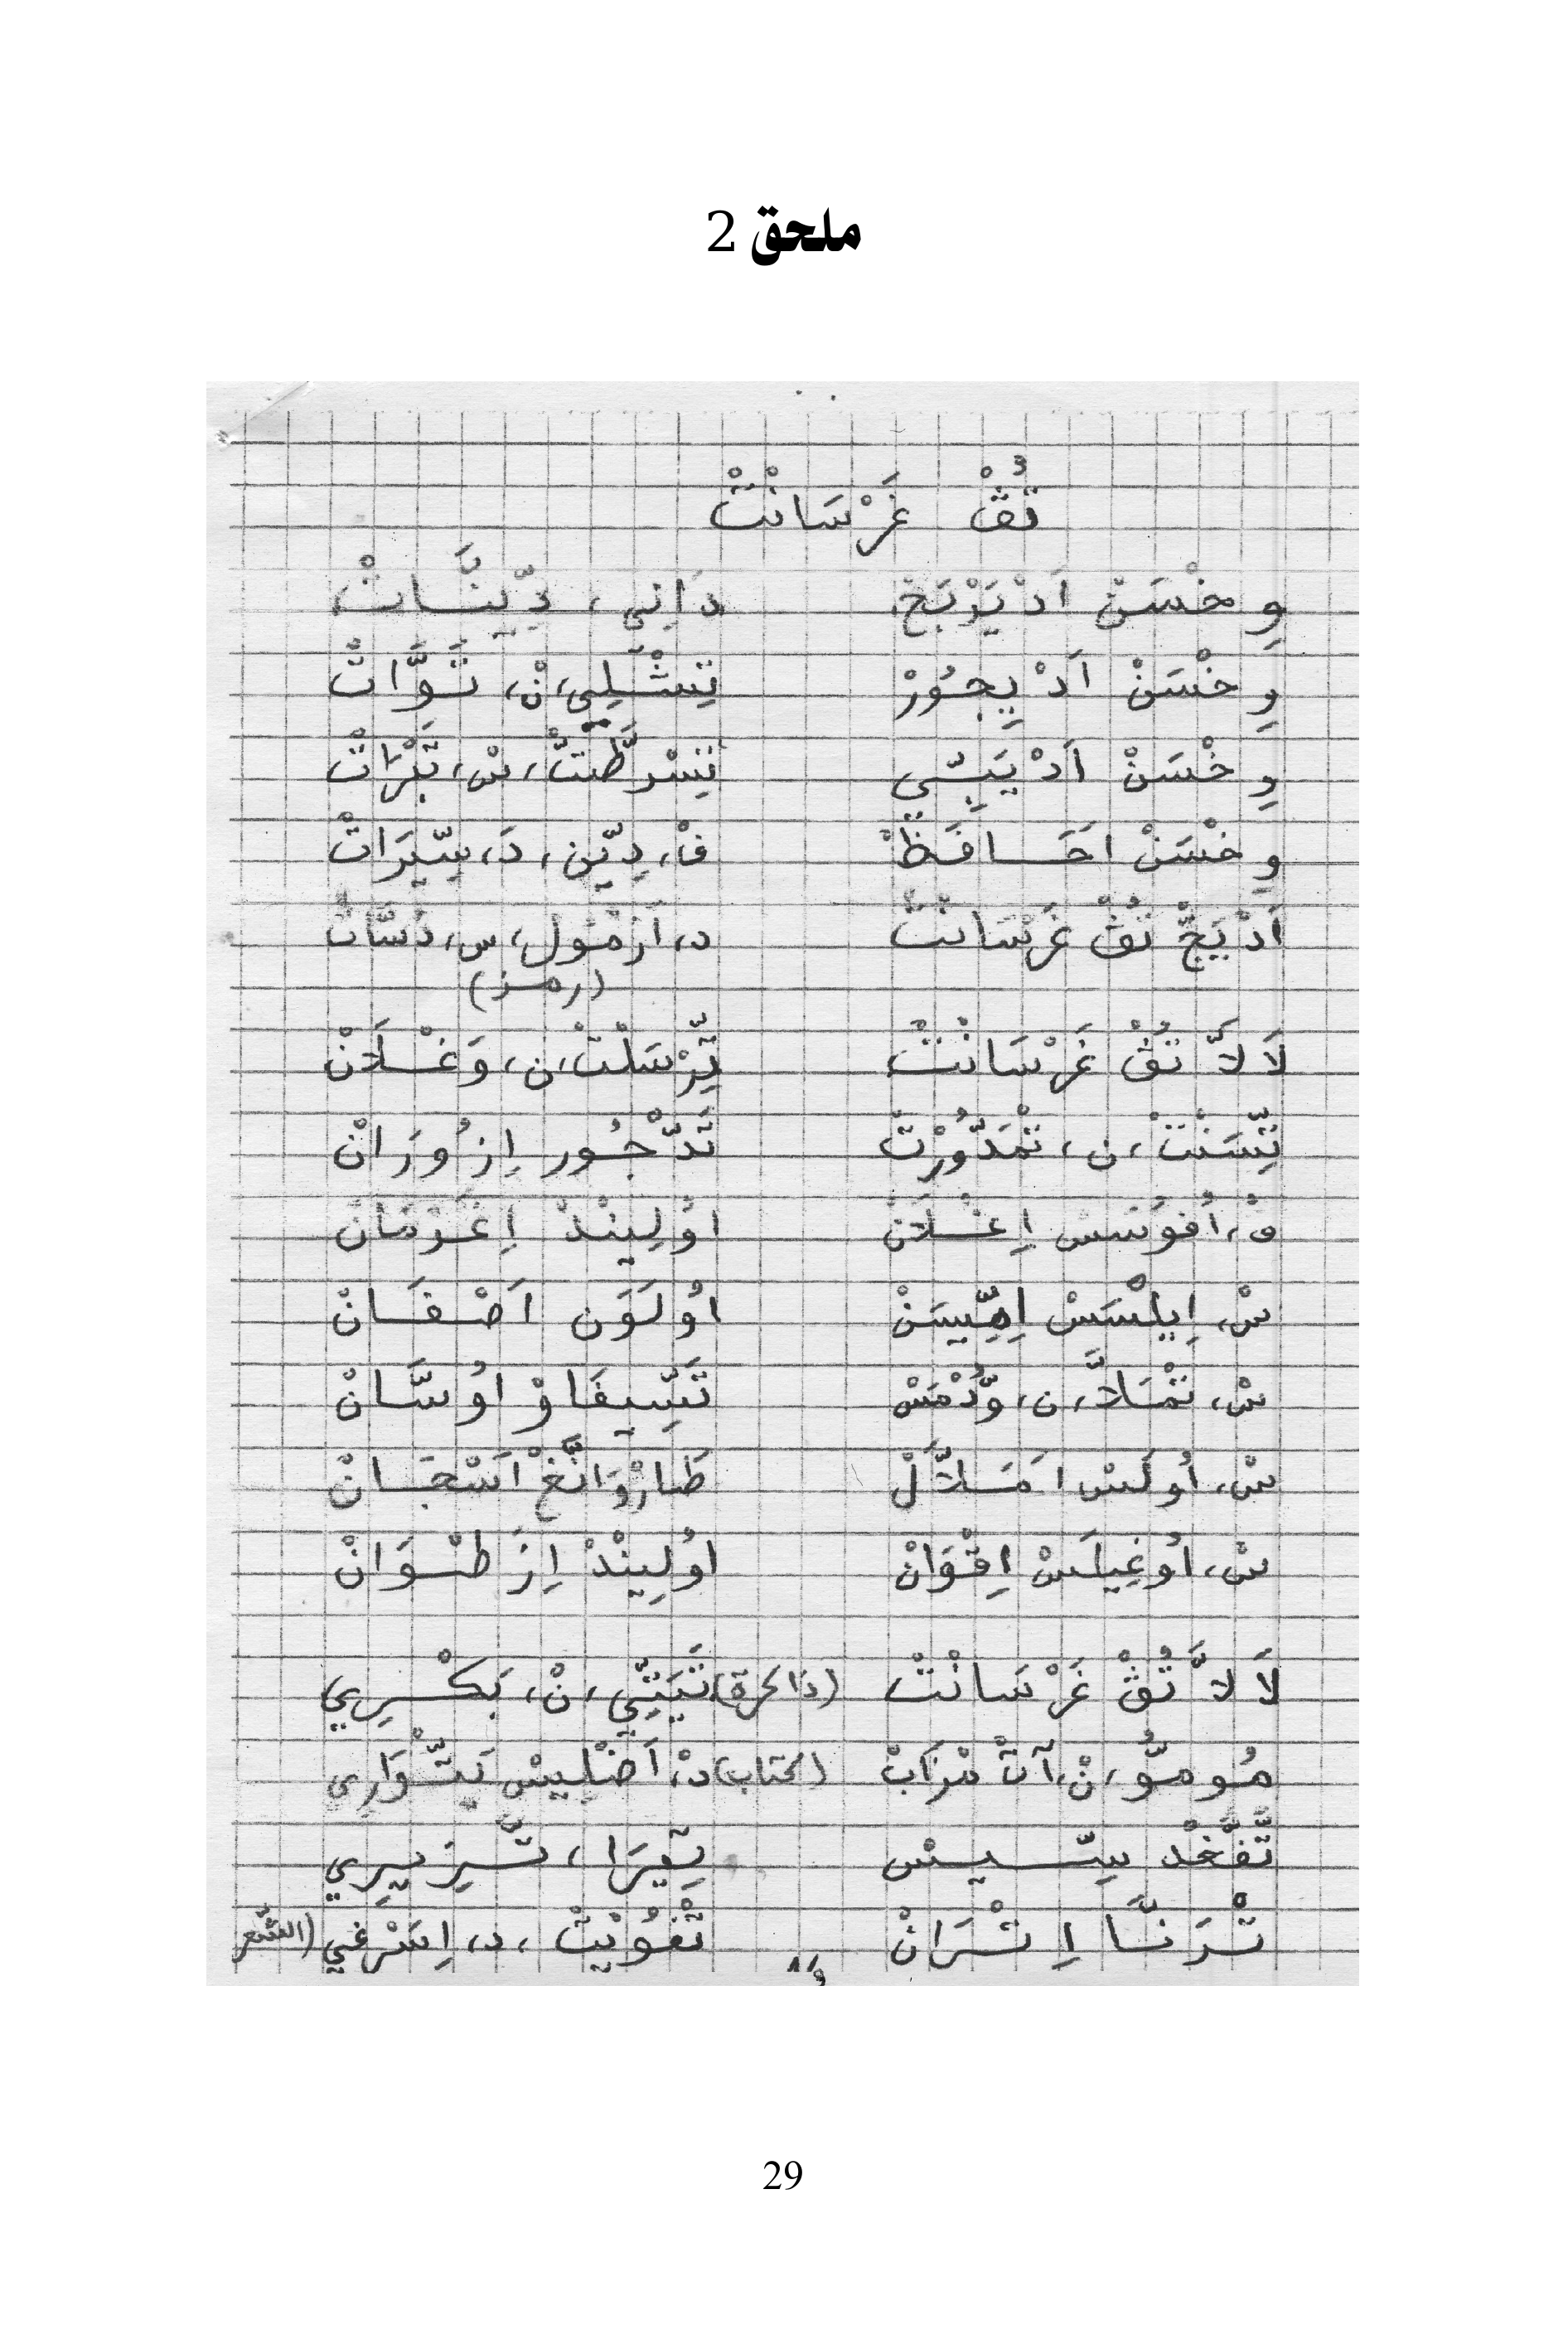 ملحق 2
تُڤْ غَرْسَانْتْ
وِخْسَنْ اَدْ يَرْبَحْ، دَانِي، دِّينَّاتْ،
وِخْسَنْ اَدْ يِجُورْ تِشْلِي، نْ، تَوَّاتْ
وِخْسَنْ اَدْ يَبِّي تِسْرَطِّتْ، سْ، تَبْرَاتْ
وِخْسَنْ احَافَظْ فْ، دِّين، دَ، سِّيرَاتْ
اَدْ يَجّْ تُڤْ غَرْسَانْتْ د، اَزْمُول، س، دَسَّاتْ
(رمز)
لَا لَّا تُڤْ غَرْسَانْتْ تِّرْسَلْتْ، ن، وَغْلَانْ
تِّسَنْتْ، ن، تْمَدُّورْتْ تَدّْجُور اِزُورَانْ
فْ، اُفُوسَسْ اِغْلَانْ اوُلِينْدْ اِغَرْمَانْ
سْ، اِيلْسَسْ اِهِّيسَنْ اوُلَوَن اَصْفَانْ
سْ، تَمْلَّا، ن، وُّدْمَسْ تَسِّيفَاوْ اوُسَّانْ
سْ، اُولَسْ امَلَّالْ طَارْوَانَّغْ اسْجَانْ
سْ، اُوغِيلَسْ اِقْوَانْ اوُلِينْدْ اِزَطْوَانْ
لَا لَّا تُڤْ غَرْسَانْتْ (ذاكرة) تَيَتِّي، نْ، بَكْرِي
هُومُّو، نْ، آتْ مْزَابْ (كتاب) دْ، اَضْلِيسْ يَتّْوَارِي
تَّفَّغْد سِّيسْ تِيرَا، تَّزِيرِي
تَرْنَّا اِتْرَانْ تْفُوِيتْ، د، اِسَرْغِي (الشعر
1/2
29